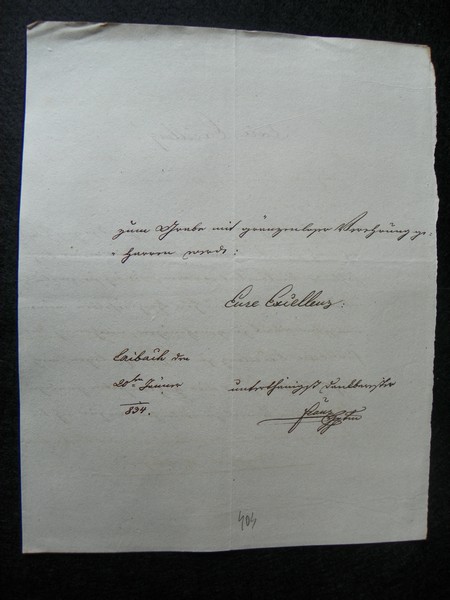 zum Grabe mit gränzenloser Verehrung ge-
harren werde:
Eure Excellenz:
Laibach den
20ten Jänner
834.
unterthänigst dankbarster
Franz
404